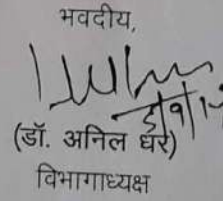 भवदीय,
(डॉ. अनिल धर)
विभागाध्यक्ष